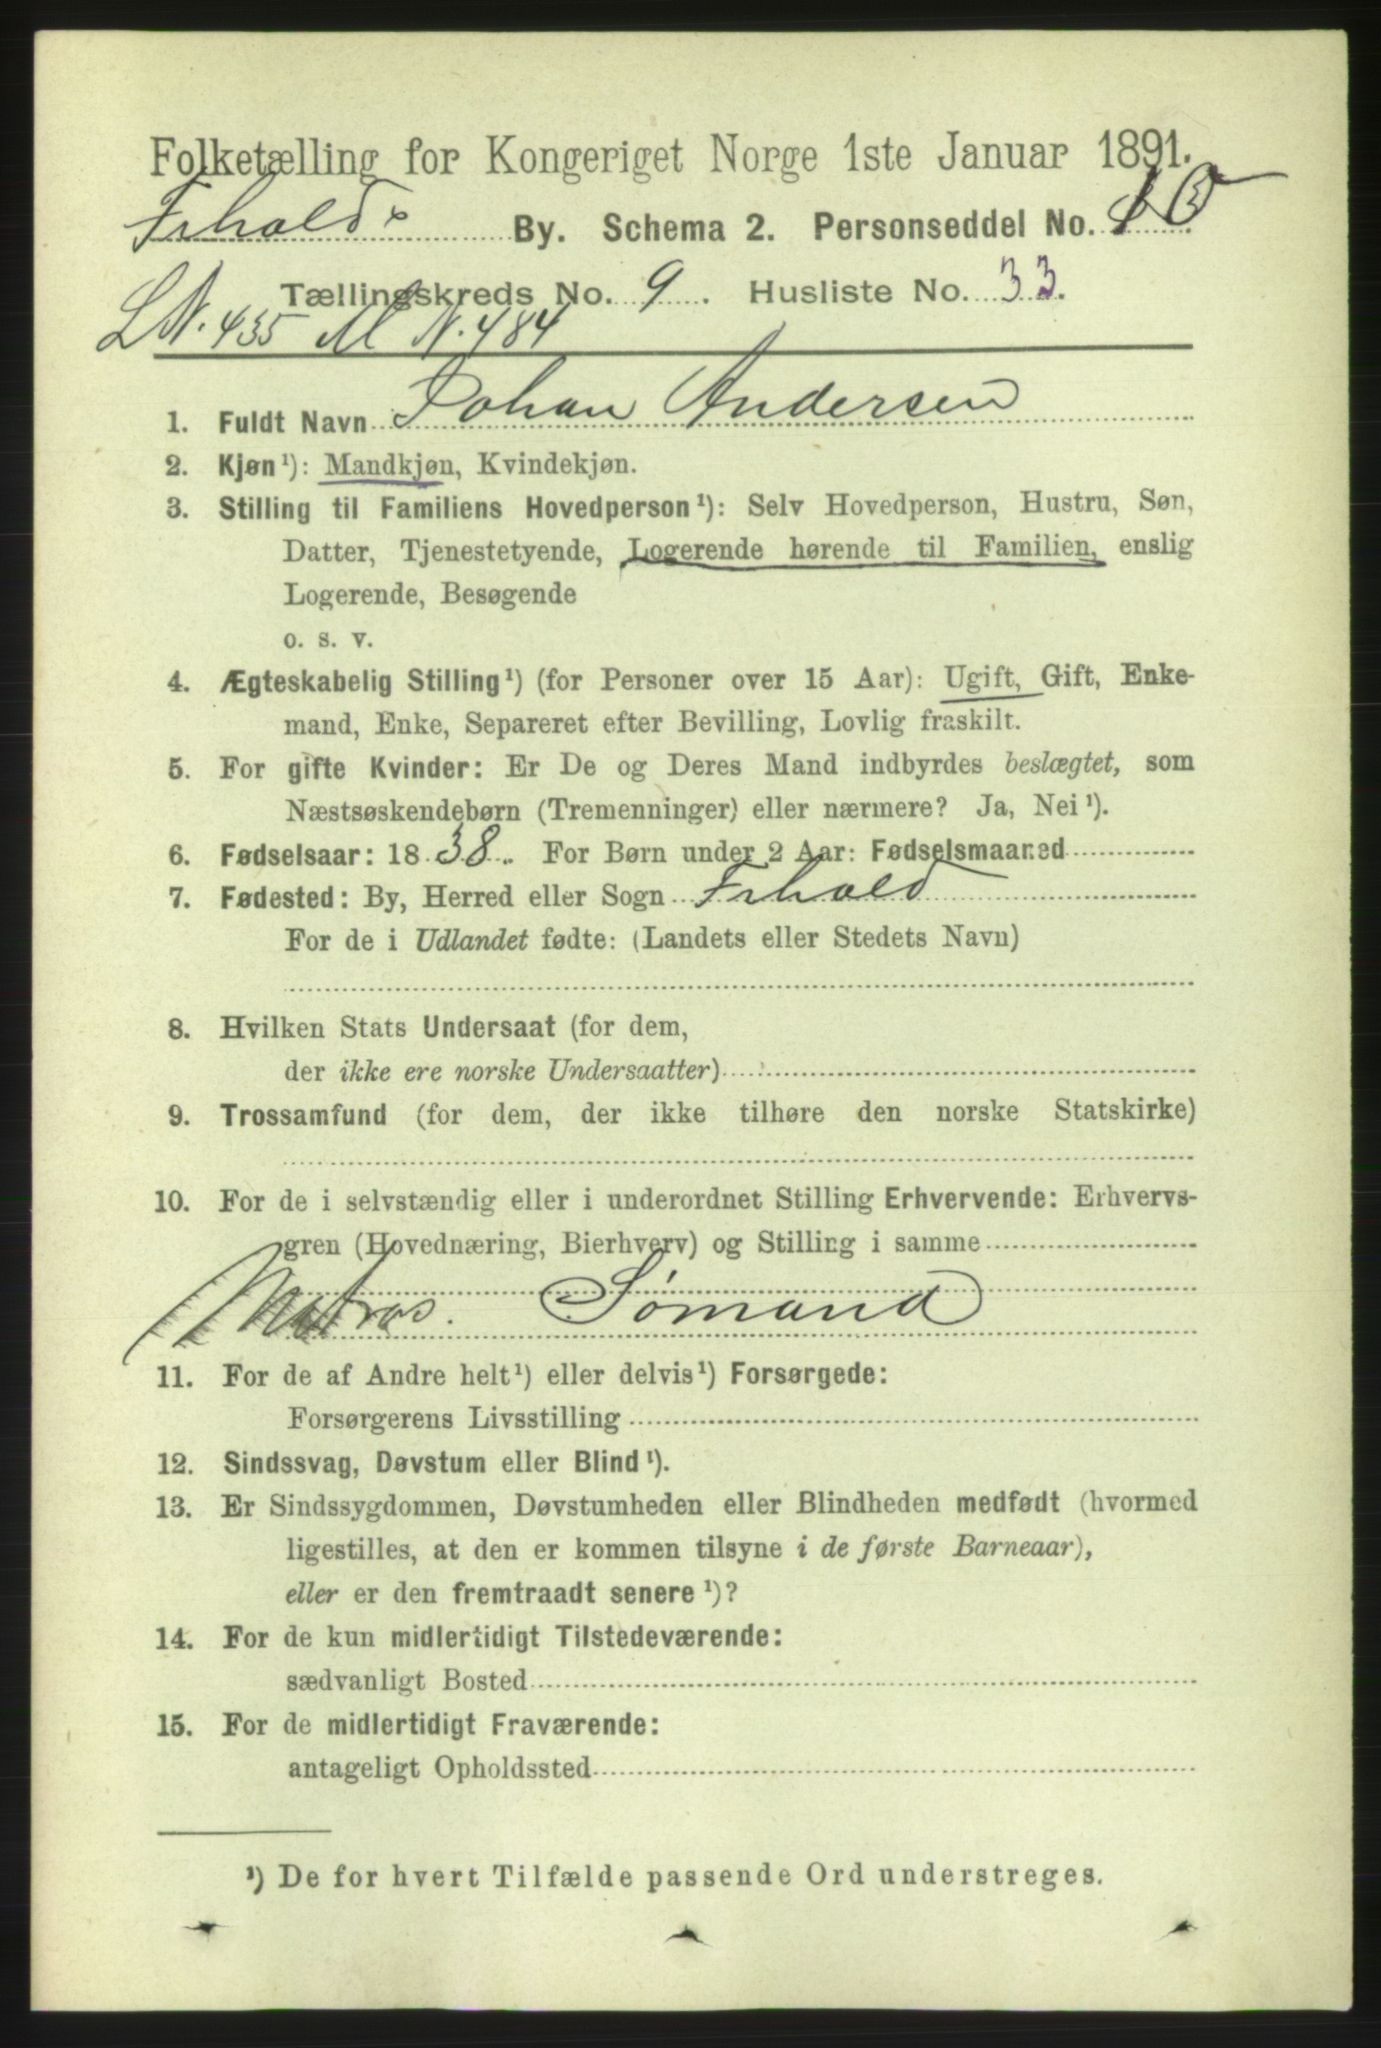 Folketælling for Kongeriget Norge 1ste Januar 1891.
Frhalds By. Schema 2. Personseddel No. 10
Tællingskreds No. 9. Husliste No. 33.
L N. 435 M N. 484
1. Fuldt Navn Johan Andersen
2. Kjøn¹): Mandkjøn, Kvindekjøn.
3. Stilling til Familiens Hovedperson¹): Selv Hovedperson, Hustru, Søn,
Datter, Tjenestetyende, Logerende hørende til Familien, enslig
Logerende, Besøgende
o. s. v.
4. Ægteskabelig Stilling¹) (for Personer over 15 Aar): Ugift, Gift, Enke-
mand, Enke, Separeret efter Bevilling, Lovlig fraskilt.
5. For gifte Kvinder: Er De og Deres Mand indbyrdes beslægtet, som
Næstsøskendebørn (Tremenninger) eller nærmere? Ja, Nei¹).
6. Fødselsaar: 1838. For Børn under 2 Aar: Fødselsmaaned
7. Fødested: By, Herred eller Sogn Frhald
For de i Udlandet fødte: (Landets eller Stedets Navn)
8. Hvilken Stats Undersaat (for dem,
der ikke ere norske Undersaatter)
9. Trossamfund (for dem, der ikke tilhøre den norske Statskirke)
10. For de i selvstændig eller i underordnet Stilling Erhvervende: Erhvervs-
gren (Hovednæring, Bierhverv) og Stilling i samme
Matros. Sømand
11. For de af Andre helt¹) eller delvis¹) Forsørgede:
Forsørgerens Livsstilling
12. Sindssvag, Døvstum eller Blind¹).
13. Er Sindssygdommen, Døvstumheden eller Blindheden medfødt (hvormed
ligestilles, at den er kommen tilsyne i de første Barneaar),
eller er den fremtraadt senere¹)?
14. For de kun midlertidigt Tilstedeværende:
sædvanligt Bosted
15. For de midlertidigt Fraværende:
antageligt Opholdssted
¹) De for hvert Tilfælde passende Ord understreges.